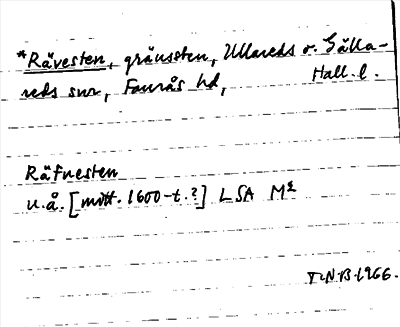 *Rävesten, gränssten, Ullareds o. Gälla-
reds snr, Faurås hd, Hall. l.
Räfnesten
u.å. [mitt. 1600-t.?] LSA
T.N.B. 1966.